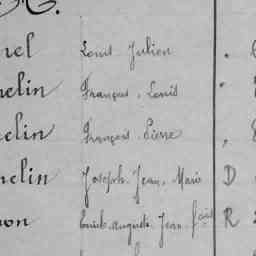 nel Louis Julien
nelin François Louis
elin François Pierre
nelin Joseph Jean Marie D
non Auguste Jean fois R